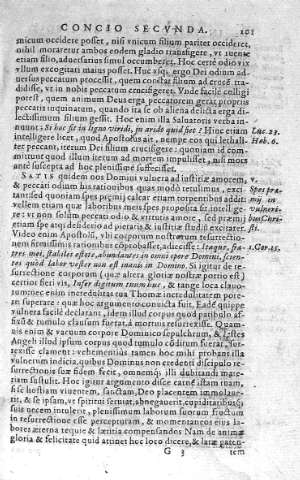 CONCIO SECVNDA. 101
micum occidere posset, nisi vnicum filium pariter occideret,
nihil moraretur ambos eodem gladio transfigere, vt inuente
etiam filio, aduersarius simul occumberet. Hoc certè odio vix
vllum excogitari maius posset. Huc vsq; ergo Dei odium ad-
uersus peccatum progressum, quem constat filium ad crucē
disse, vt in nobis peccatum crucifigeret. Vnde facilè colligi
potest, quem animum Deus erga peccatorem gerat propriis
peccatis inquinatum, quando ita se ob aliena delicta erga di-
lectissimum filium gessit. Hoc enim illa Saluatoris verba in-
nunt: Si hæc fit in ligno viridi, in arido quid fiet? Hinc etiam
intelligere licet, quod Apostolus ait, nempe eos qui lethali-
ter peccant, iterum Dei filium crucifigere: quoniam id com-
mittunt quod illum iterum ad mortem impulisset, nisi mors
antè suscepta ad hoc plenissimè suffecisset.
Luc. 23.
Hab. 6.
SATIS quidem nos Domini vulnera ad iustitiæ amorem,
& peccati odium his rationibus quas modò retulimus, exci-
tant: sed quoniam spes præmij calcar etiam torpentibus addit,
vellem etiam quæ laboribus meis spes proposita sit intellige-
re: vt non solùm peccati odio & virtutis amore, sed præmij
etiam spe atq; desiderio ad pietatis & iustitiæ studiū exciter.
v.
Spes præ-
mij in
vulneri-
bus Chri-
sti.
Video enim Apostolū, vbi corporum nostrorum resurrectio-
nem firmissimis rationibus cōprobasset, adiecisse: Itaque, fra-
tres mei, stabiles estote, abundantes in omni opere Domini, scien-
tes quòd labor vester non est inanis in Domino. Si igitur de re-
surrectione corporum (quæ altera gloriæ nostræ portio est)
1. Cor. 15.
certior fieri vis, Infer digitum tuum huc, & tange loca clauo-
rum: nec enim indubitata tua Thomæ incredulitatem pote-
rit superare: quæ hoc argumento conuicta fuit. Eadē quippe
vulnera facilè declarant, idem illud corpus quod patibulo af-
fixū & tumulo clausum fuerat, à mortuis resurrexisse. Quam-
quis enim & vacuum corpore Dominico sepulchrum, & testes
Angeli illud ipsum corpus quod tumulo cōditum fuerat, sur-
rexisse clament: vehementiùs tamen hoc mihi probant illa
vulnerum indicia, quibus Dominus non credenti discipulo re-
surrectionis suæ fidem fecit, omnemq; illi dubitandi mate-
riam sustulit. Hoc igitur argumento disce carnē istam tuam,
si se hostiam viuentem, sanctam, Deo placentem immolaue-
rit, & se ipsam, vt spiritui seruiat, abnegauerit, cupiditatibusq;
suis vncem intulerit, plenissimum laborum suorum fructum
in resurrectione esse percepturam, & momentaneos eius la-
bores æterna requie & lætitia compensandos. Nam de animæ
gloria & felicitate quid attinet hoc loco dicere, & latæ paten-
G 3 tem